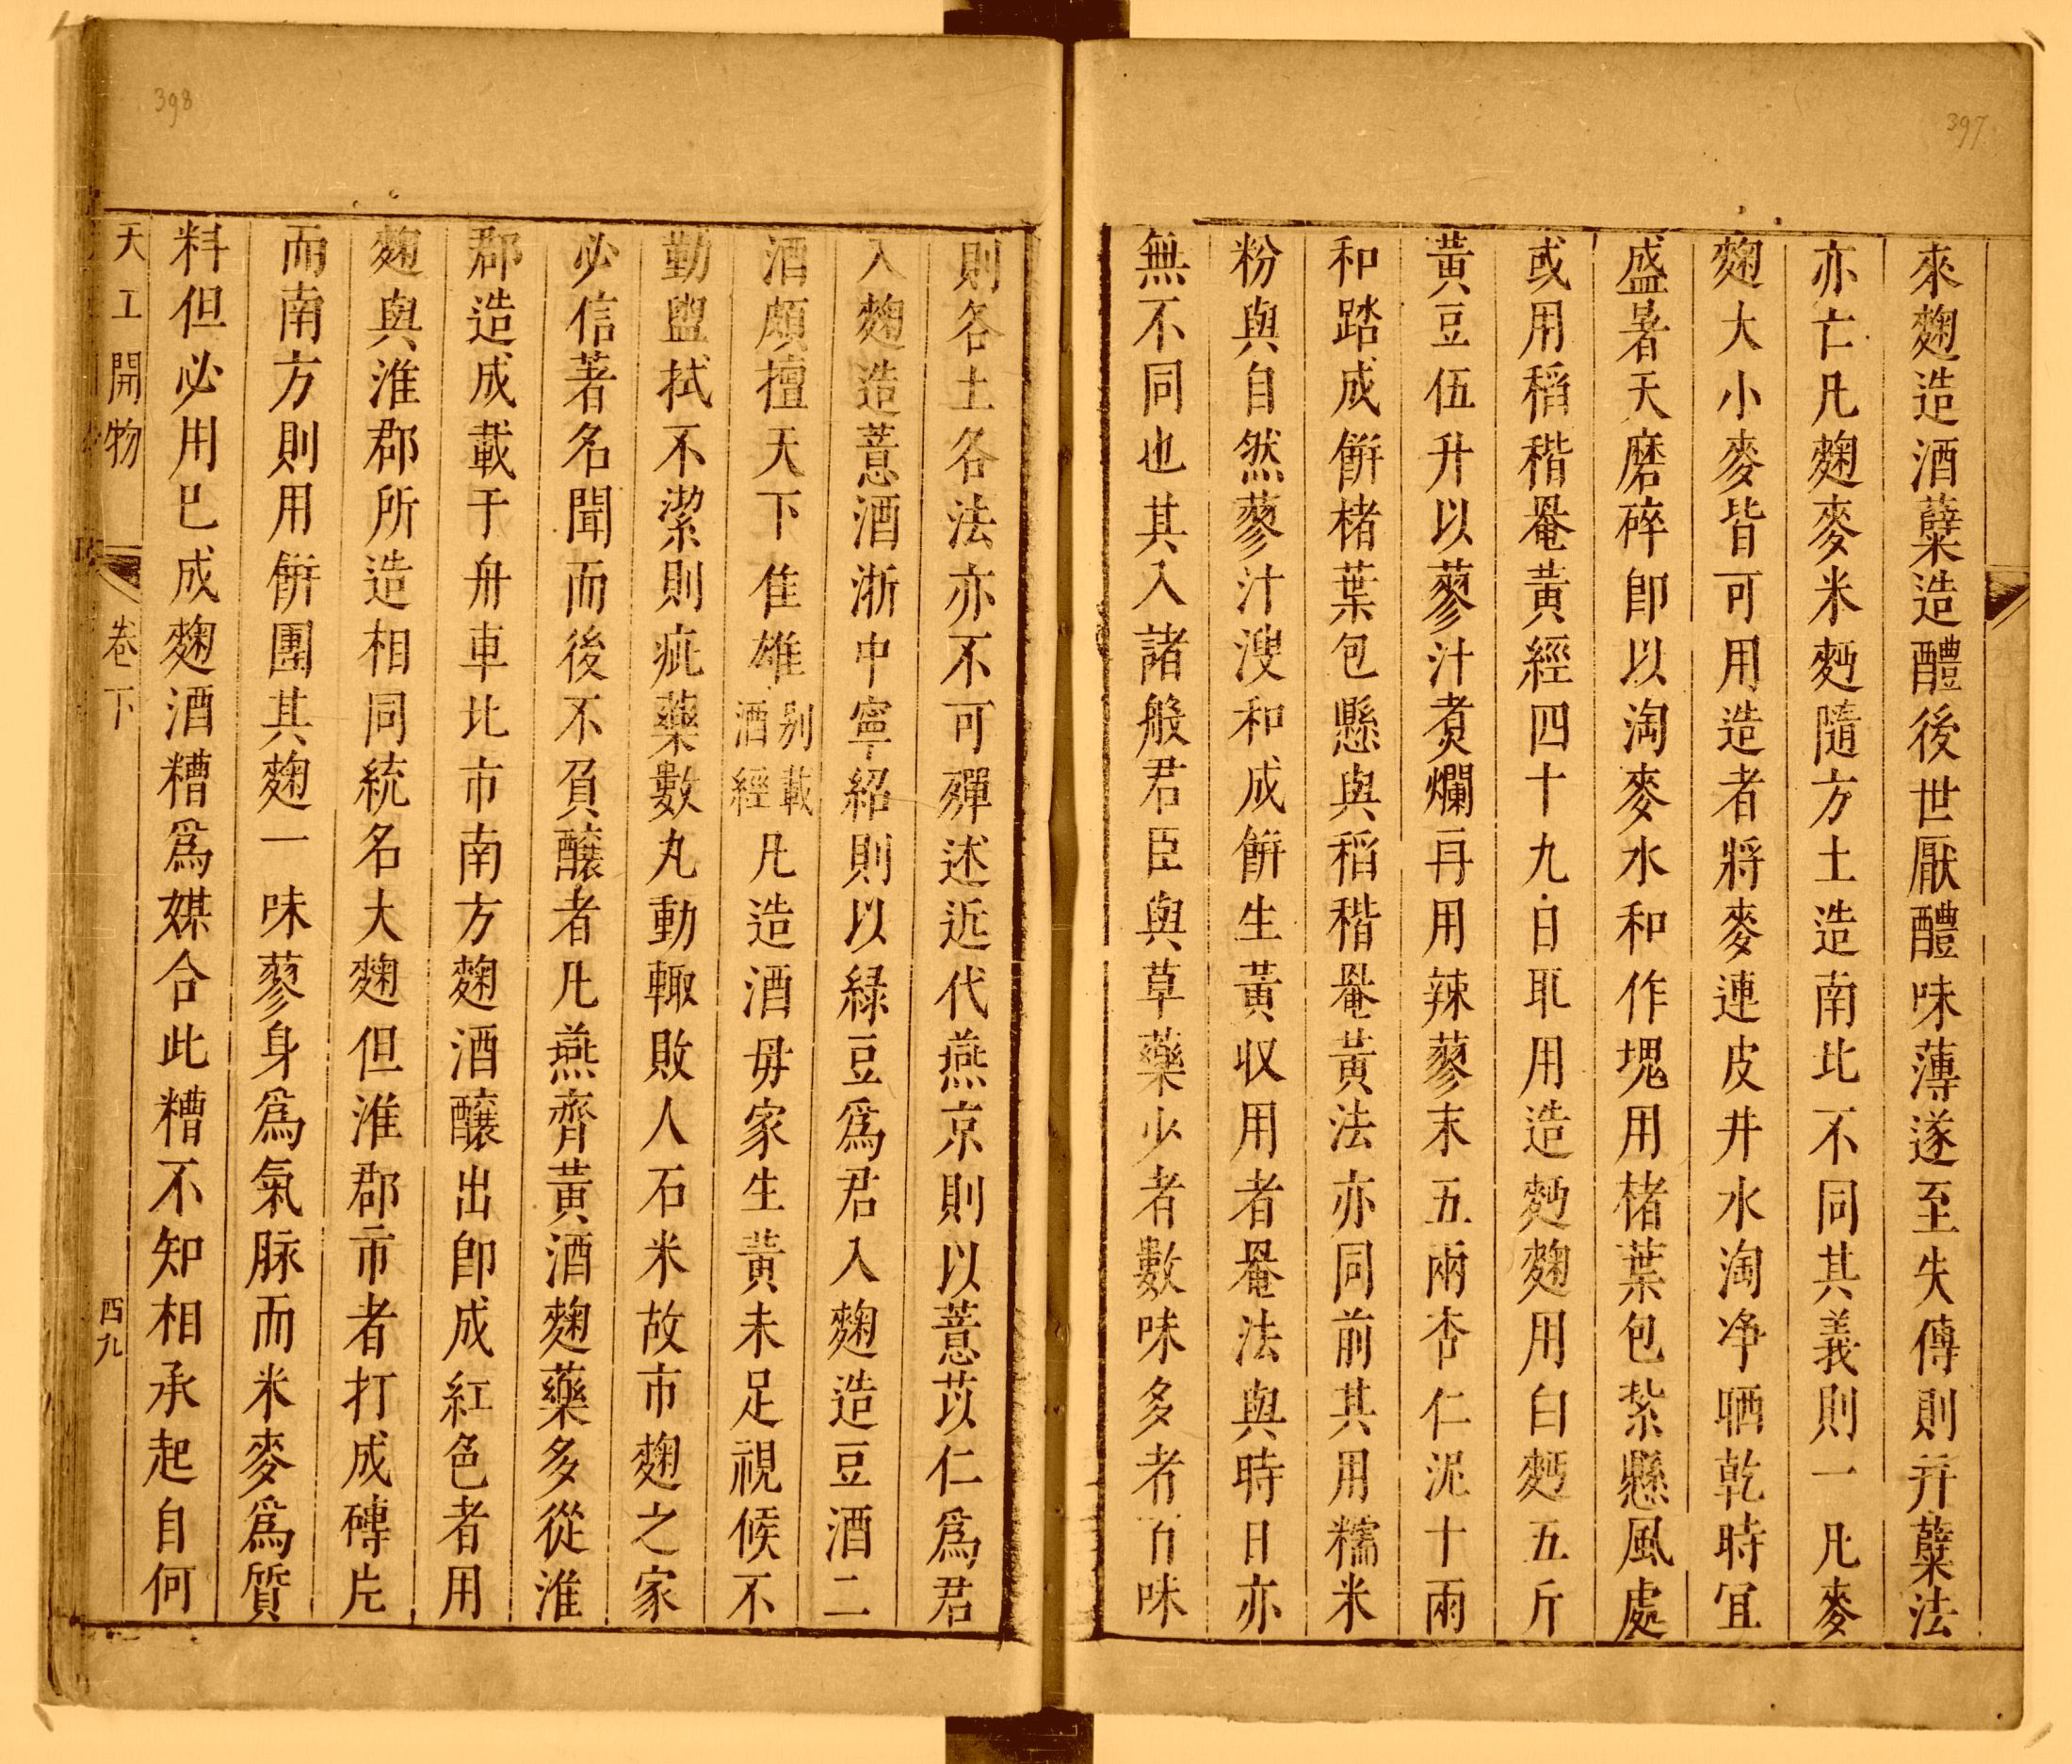 397
來麴造酒糵造醴後世厭醴味薄遂至失傳則幷糵法
亦亡凡麴麥米麪隨方土造南北不同其義則一凡麥
麴大小麥皆可用造者將麥連皮井水淘净晒乾時宜
盛暑天磨碎卽以淘麥水和作塊用楮葉包紮懸風處
或用稻稭罨黃經四十九日取用造麪麴用白麪五斤
黃豆伍升以蓼汁煑爛再用辣蓼末五兩杏仁泥十兩
和踏成餅楮葉包懸與稻稭罨黃法亦同前其用糯米
粉與自然蓼汁溲和成餅生黃収用者罨法與時日亦
無不同也其入諸般君臣與草藥少者數味多者百味
398
則各土各法亦不可殫述近代燕京則以薏苡仁爲君
入麴造薏酒浙中寧紹則以緑豆爲君入麴造豆酒二
酒頗擅天下隹雄別載酒經凡造酒毋家生黃未足視候不
勤盥拭不潔則疵藥數丸動輙敗人石米故市麴之家
必信著名聞而後不負釀者凡燕齊黃酒麴藥多從淮
郡造成載于舟車北市南方麴酒釀出卽成紅色者用
麴與淮郡所造相同統名大麴但淮郡市者打成磚片
而南方則用餅團其麴一味蓼身爲氣脉而米麥爲質
料但必用已成麴酒糟爲媒合此糟不知相承起自何
天工開物 卷下 四九